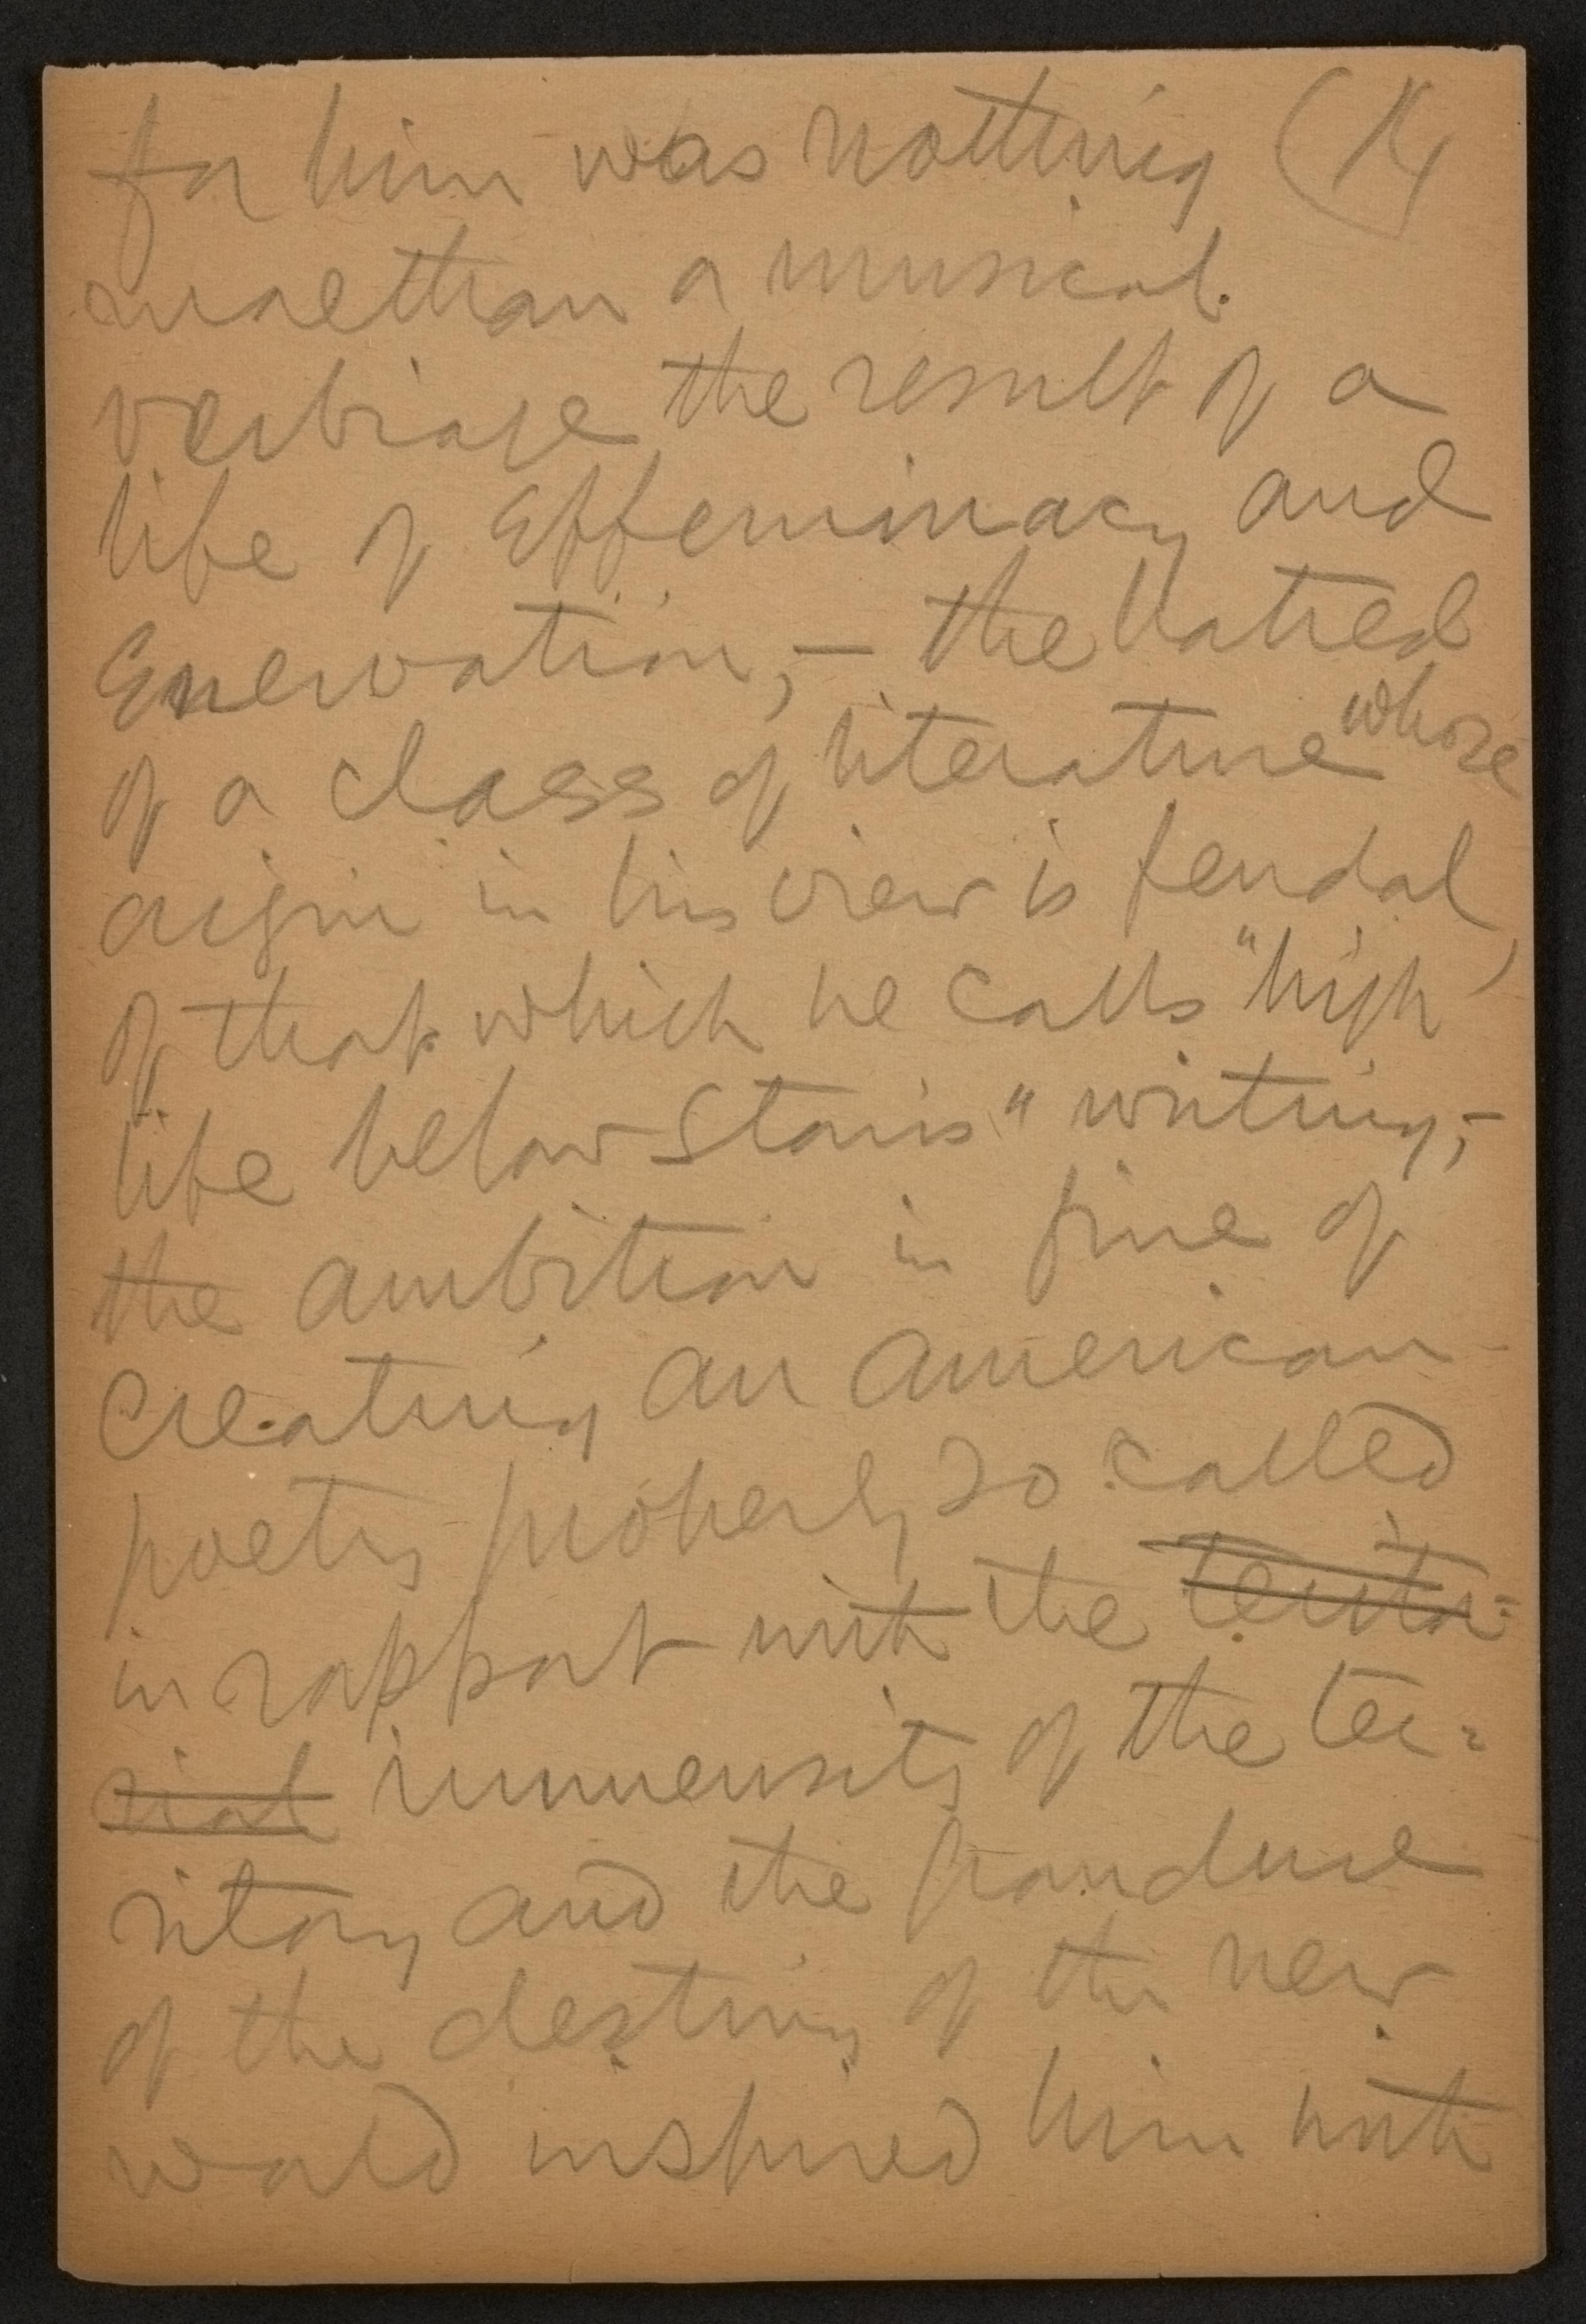 for him was nothing (14
more than a musical
verbiage the result of a
life of Effeminacy and
Enervation, — the hatred
of a class of literature whose
origin in his view is feudal,
of that which he calls "high
life below stairs" writing, -
the ambition in fine of
creating an American
poetry properly so called
in rapport with the territo-
rial immensity of the ter-
ritory and the grandure
of the destiny of the new
world inspired him with